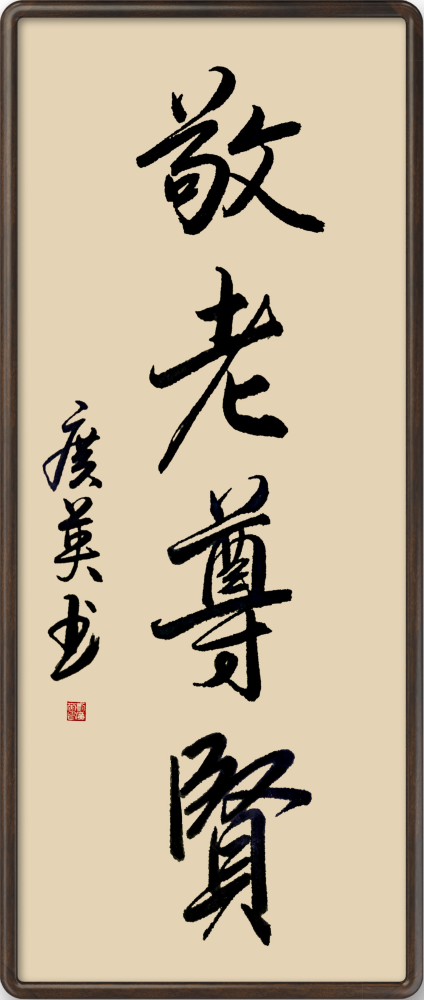 敬老尊賢
廣英书